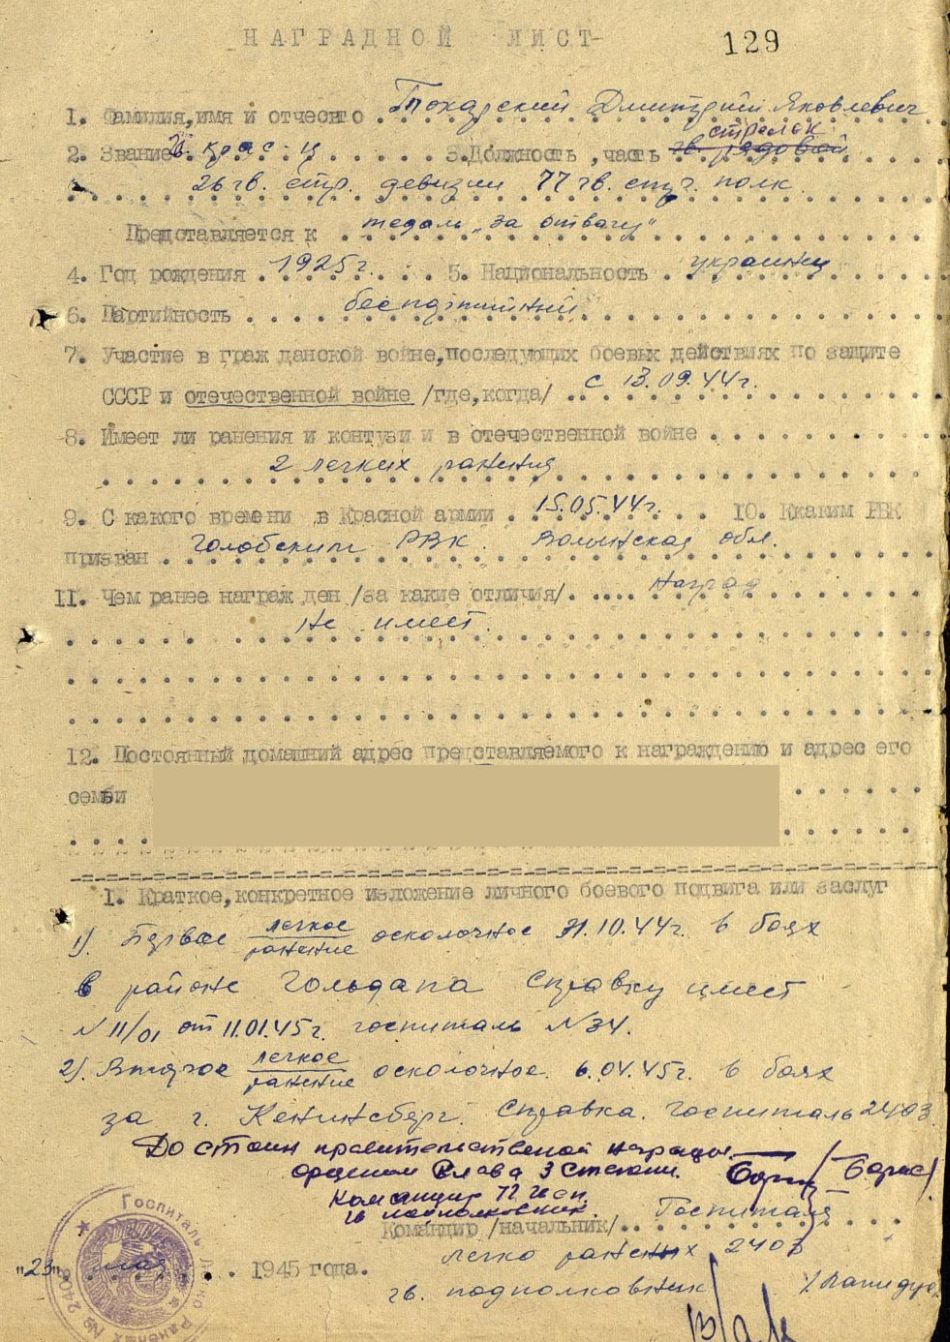 НАГРАДНОЙ ЛИСТ
129
1. Фамилия,имя и отчество Токарский Дмитрий Яковлевич
стрелок
2. Звание гв. крас-ц 3.Должность ,часть гв. рядовой
26 гв. стр. девизии 77 гв. стр. полк
Представляется к медаль „за отвагу"
4. Год рождения 1925г. 5. Национальность украинец
6. Партийность беспартийный
7. Участие в граж данской войне,последующих боевых действиях по защите
СССР и отечественной войне /где,когда/ с 13.09.44г.
8. Имеет ли ранения и контузи и в отечественной войне
2 легких ранения
9. С какого времени в Красной армии 15.05.44г. 10. Кжаким РВК
призван Голобским РВК. Волынская обл.
11. Чем ранее награж ден /за какие отличия/ Наград
Не имеет.
12. Постоянный домашний адрес представляемого к награждению и адрес его
семьи
1. Краткое,конкретное изложение личного боевого подвига или заслуг
1). Первое легкое ранение осколочное 31.10.44г. в боях
в районе Гольдапа Справку имеет
N 11/01 от 11.01.45г. госпиталь N34.
2). Второе легкое ранение осколочное 6.04.45г. в боях
за г. Кенинсберг. Справка. Госпиталь 2403
Достоин правительственой награды
орденом Слава 3 Степени.
Командир 77 гв сп.
гв подполковник.
Командир /начальник/ Госпиталя
легко раненых 2403
"23" мая 1945 года.
гв. подполковник
Госпиталь Легко Раненых № 2403